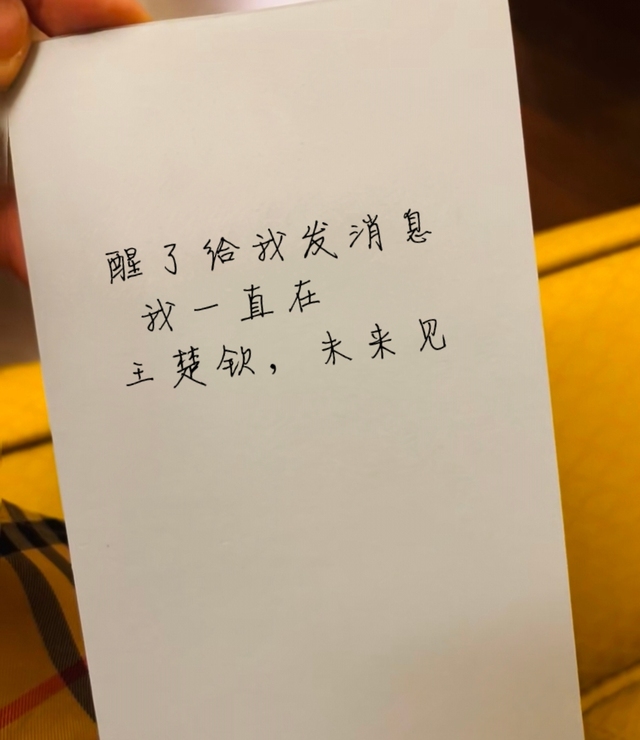 醒了给我发消息
我一直在
王楚钦，未来见